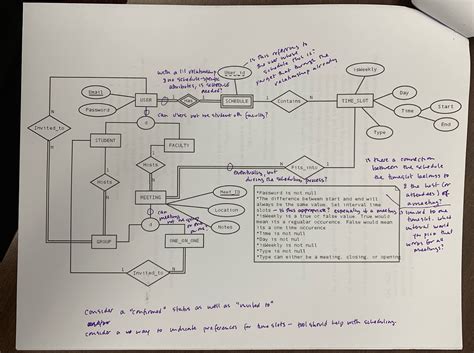 - Is this referring to
the user whose
schedule this is?
you get that through the
relationship already
with a 1:1 relationship
& no schedule-specific
attributes, is schedule
needed?
User_id
isWeekly
Email
Password
USER
Has
SCHEDULE
Contains
TIME_SLOT
Day
Time
Start
End
Type
can users be not student or faculty?
d
Invited_to
STUDENT
FACULTY
Hosts
Hosts
Eventually, but
during the scheduling process?
Fits_into
Is there a connection
between the schedule
the timeslot belongs to
& the host (or
attendees) of
a meeting?
MEETING
Meet_ID
Location
Notes
d
can
meeting
not be group
or one on
one?
GROUP
ONE_ON_ONE
Invited_to
*Password is not null
*The difference between start and end will
always be the same value. Let interval time
slots - is this appropriate? especially if a meeting
*isWeekly is a true or false value. True would
mean is a regular occurence. False would mean
is a one time occurence
*Time is not null
*Day is not nul
*isWeekly is not null
*Type is not null
*Type can either be a meeting, closing, or opening
is tied to one
timeslot. what
interval would
you pick that
works for all
meetings?
Consider a "confirmed" status as well as "invited to"
and/or
consider a way to indicate preferences for time slots - tool should help with scheduling.